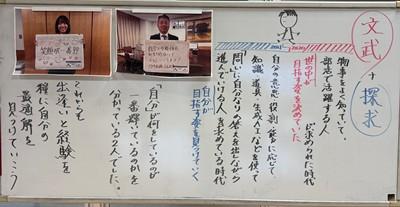 文武+探求
物事をよく知っていて、
部活で活躍する人
が求められた時代
世の中が
目指す姿を決めていた
自分の意思、役割、能力に応じて、
知識、道具、生成AIなどを使って
問いに自分なりの答えを出しながら
進んでいける人を求めている時代
自分が
目指す姿を見つけていく
「自分」が何をしているのが
一番輝いているのかを
分かっている2人でした。
これからも
出逢いと経験を
糧に自分の
最適解を
見つけていこう
笑顔が一番